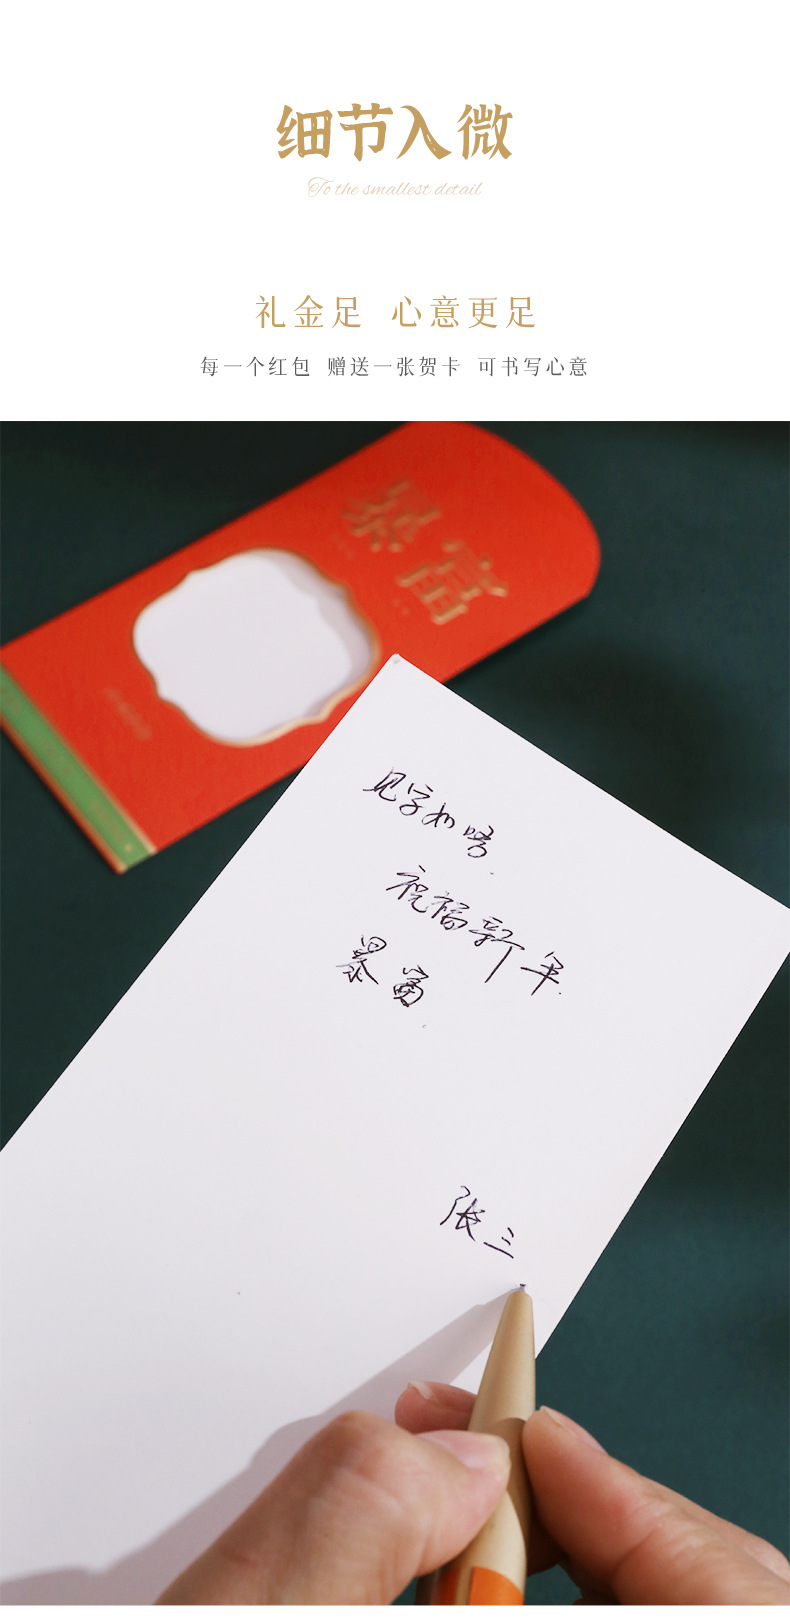 细节入微
To the smallest detail
礼金足 心意更足
每一个红包 赠送一张贺卡 可书写心意
暴富
见字如晤.
祝福新年.
暴富.
张三